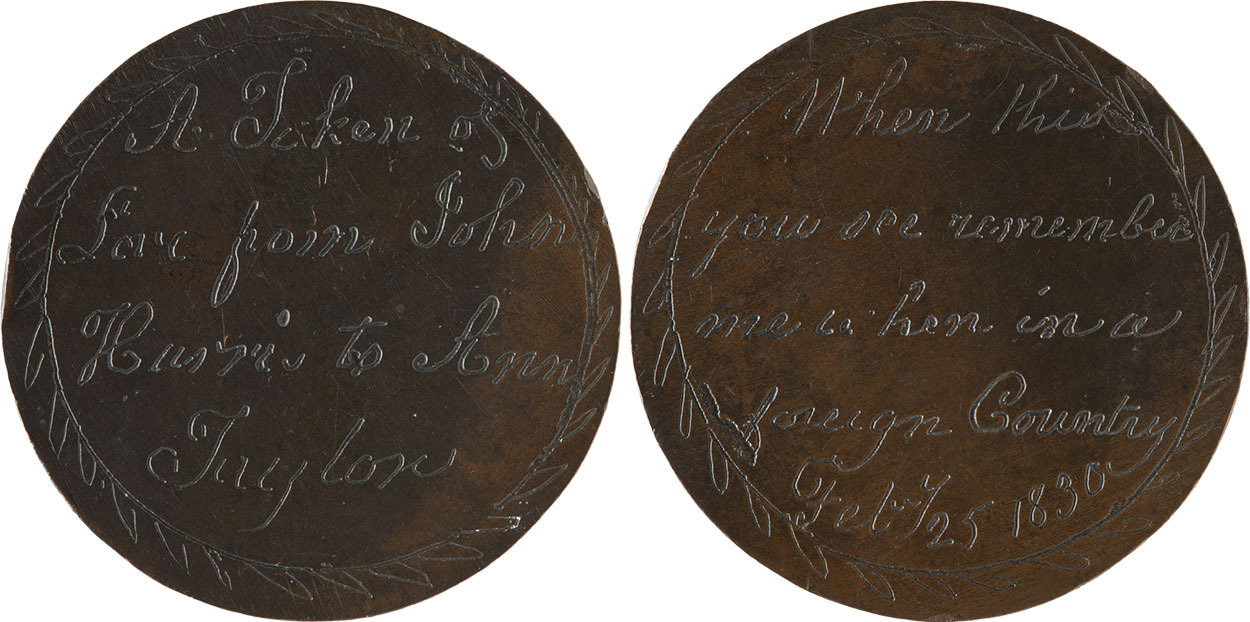 A Token of
Lov from John
Harris to Ann
Taylor
When this
you see remember
me when in a
foreign Country
Feby 25 1830